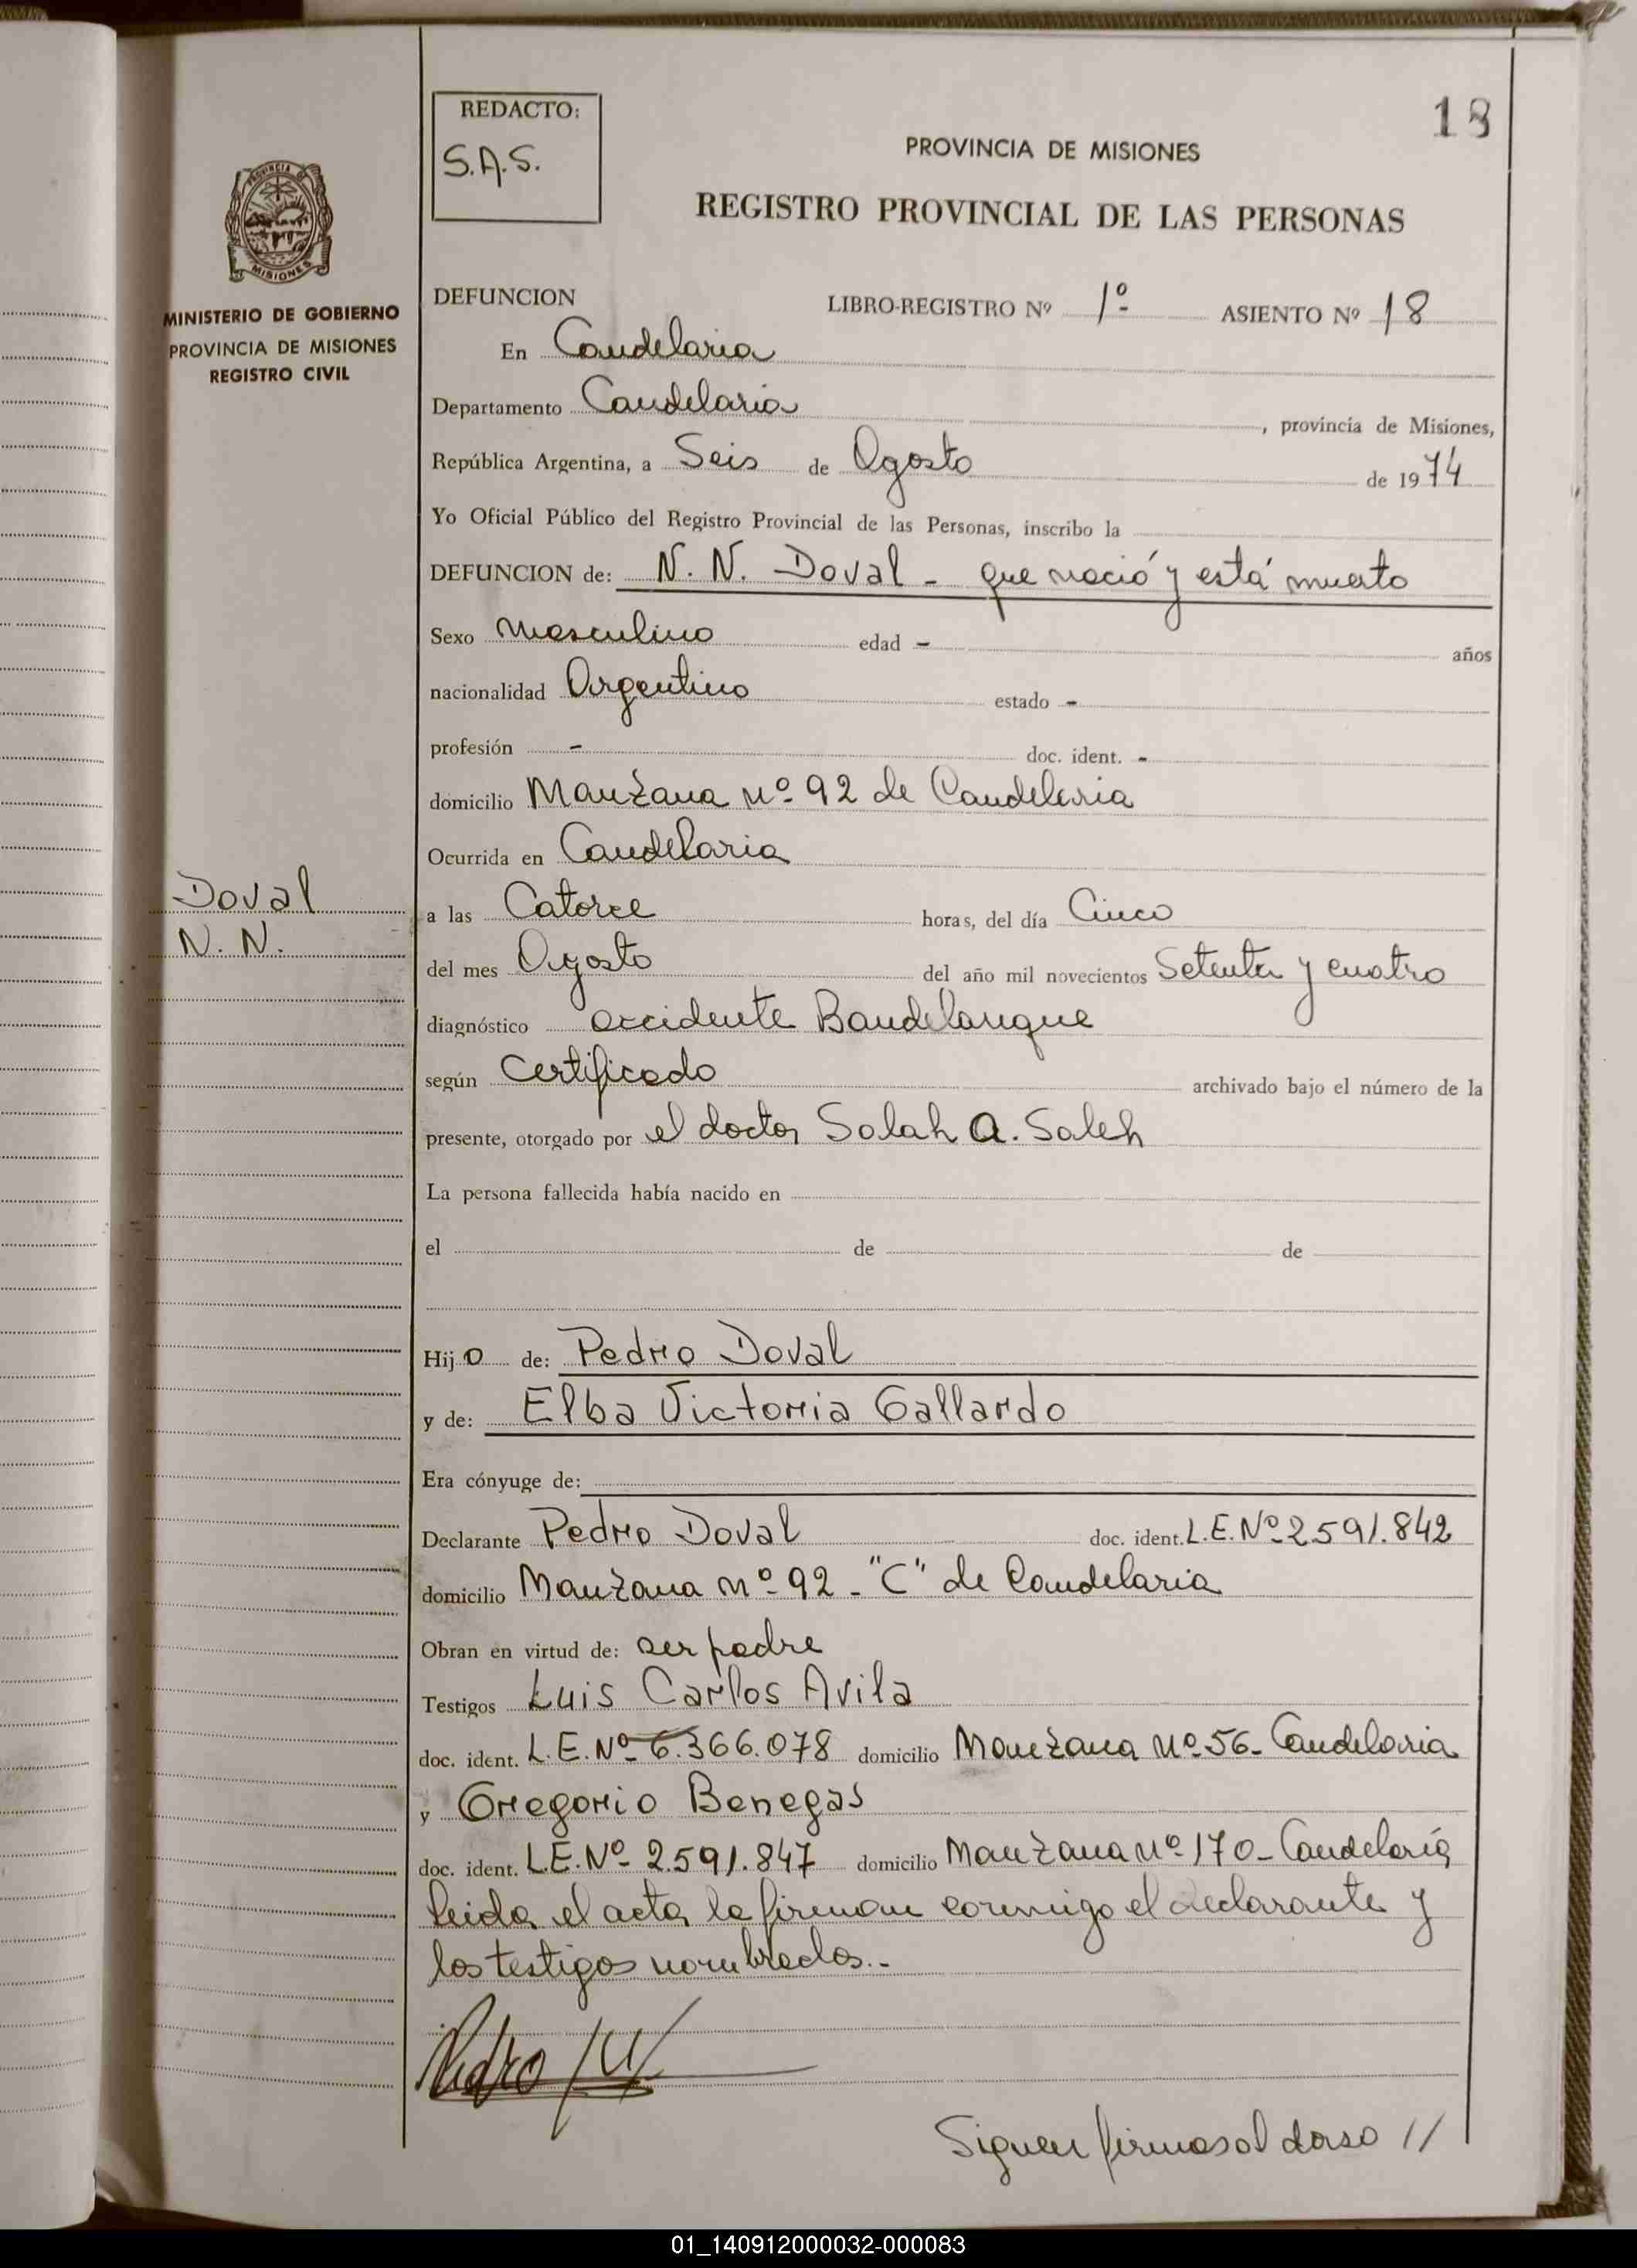 18
REDACTO:
S.A.S.
PROVINCIA DE MISIONES
REGISTRO PROVINCIAL DE LAS PERSONAS
PROVINCIA DE
MISIONES
MINISTERIO DE GOBIERNO
PROVINCIA DE MISIONES
REGISTRO CIVIL
DEFUNCION LIBRO-REGISTRO Nº 1º ASIENTO Nº 18
En Candelaria
Departamento Candelaria, provincia de Misiones,
República Argentina, a Seis de Agosto de 1974
Yo Oficial Público del Registro Provincial de las Personas, inscribo la
DEFUNCION de: N. N. Doval - que nació y está muerto
Sexo Masculino edad - años
nacionalidad Argentino estado -
profesión - doc. ident. -
domicilio Manzana nº 92 de Candelaria
Ocurrida en Candelaria
Doval
N. N.
a las Catorce horas, del día Cinco
del mes Agosto del año mil novecientos Setenta y cuatro
diagnóstico accidente Baudelauque
según Certificado archivado bajo el número de la
presente, otorgado por el doctor Salah A. Saleh
La persona fallecida había nacido en
el de de
Hijo de: Pedro Doval
y de: Elba Victoria Gallardo
Era cónyuge de:
Declarante Pedro Doval doc. ident. L.E. Nº 2.591.842
domicilio Manzana nº 92 - "C" de Candelaria
Obran en virtud de: ser padre
Testigos Luis Carlos Avila
doc. ident. L.E. Nº 6.366.078 domicilio Manzana nº 56 - Candelaria
y Gregorio Benegas
doc. ident. L.E. Nº 2.591.847 domicilio Manzana nº 170 - Candelaria
leida el acta la firman conmigo el declarante y
los testigos nombrados.-
Pedro
Siguen firmas al dorso //
01_140912000032-000083